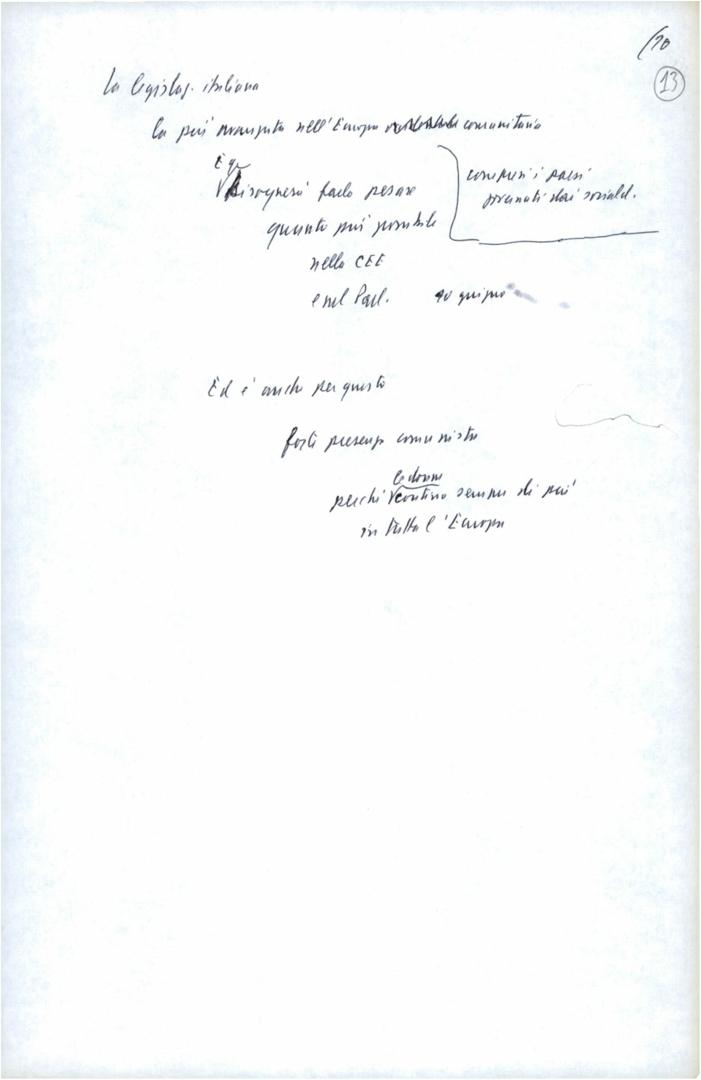 13
La legislaz. italiana
la più avanzata nell'Europa comunitaria
compresi i paesi
governati dai sociald.
E q
bisognerà farlo pesare
quanto più possibile
nella CEE
e nel Parl.
Ed è anche per questo
forte presenza comunista
le donne
perché contino sempre di più
in tutta l'Europa